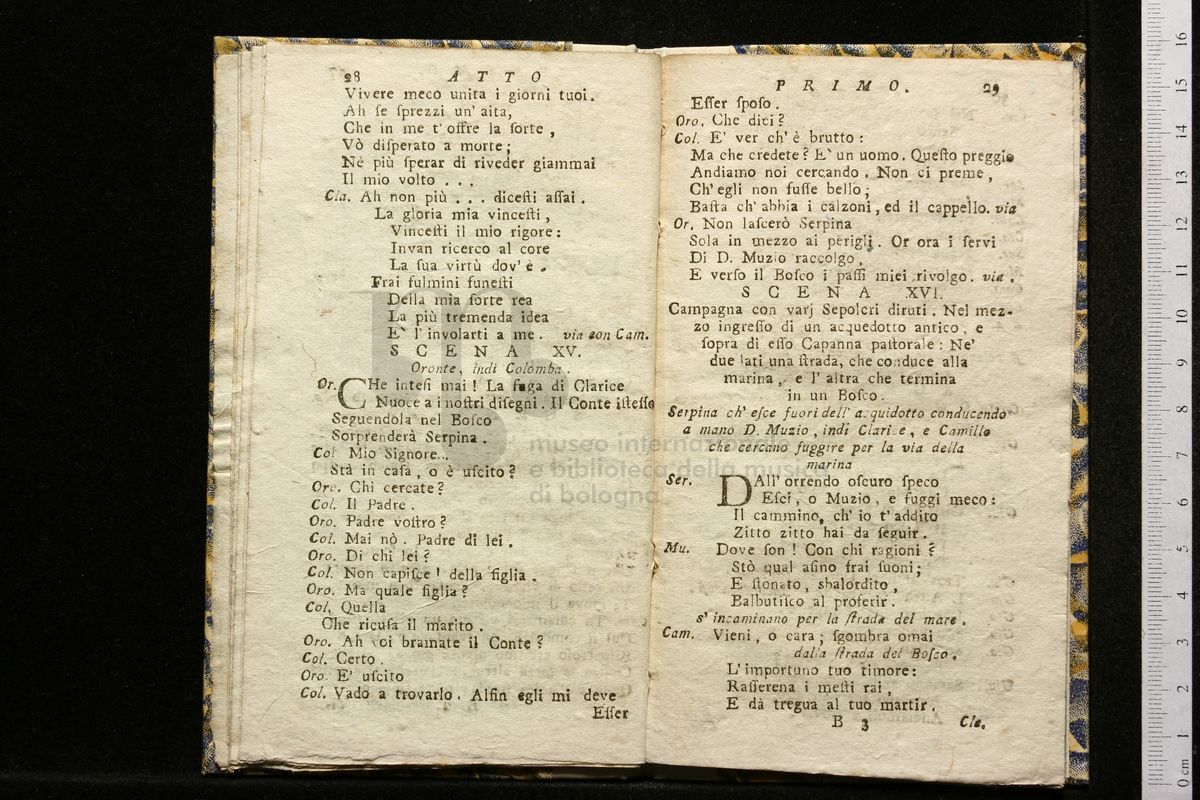 28 ATTO
Vivere meco unita i giorni tuoi.
Ah ſe ſprezzi un' aita,
Che in me t' offre la ſorte,
Vò diſperato a morte;
Nè più ſperar di riveder giammai
Il mio volto . . .
Cla. Ah non più . . . diceſti aſſai.
La gloria mia vinceſti,
Vinceſti il mio rigore:
Invan ricerco al core
La ſua virtù dov' è.
Frai fulmini funeſti
Della mia ſorte rea
La più tremenda idea
E' l' involarti a me. via con Cam.
SCENA XV.
Oronte, indi Colomba.
Or. CHe inteſi mai! La fuga di Clarice
Nuoce a i noſtri diſegni. Il Conte iſteſſo
Seguendola nel Boſco
Sorprenderà Serpina.
Col. Mio Signore...
Stà in caſa, o è uſcito?
Oro. Chi cercate?
Col. Il Padre.
Oro. Padre voſtro?
Col. Mai nò. Padre di lei.
Oro. Di chi lei?
Col. Non capiſce! della figlia.
Oro. Ma quale figlia?
Col. Quella
Che ricuſa il marito.
Oro. Ah voi bramate il Conte?
Col. Certo.
Oro. E' uſcito
Col. Vado a trovarlo. Alfin egli mi deve
Eſſer
PRIMO. 29
Eſſer ſpoſo.
Oro. Che dici?
Col. E' ver ch' è brutto:
Ma che credete? E' un uomo. Queſto preggio
Andiamo noi cercando. Non ci preme,
Ch' egli non fuſſe bello;
Baſta ch' abbia i calzoni, ed il cappello. via
Or. Non laſcerò Serpina
Sola in mezzo ai perigli. Or ora i ſervi
Di D. Muzio raccolgo,
E verſo il Boſco i paſſi miei rivolgo. via.
SCENA XVI.
Campagna con varj Sepolcri diruti. Nel mez-
zo ingreſſo di un acquedotto antico, e
ſopra di eſſo Capanna paſtorale: Ne'
due lati una ſtrada, che conduce alla
marina, e l' altra che termina
in un Boſco.
Serpina ch' eſce fuori dell' acquidotto conducendo
a mano D. Muzio, indi Clarice, e Camillo
che cercano fuggire per la via della
marina
Ser. DAll' orrendo oſcuro ſpeco
Eſci, o Muzio, e fuggi meco:
Il cammino, ch' io t' addito
Zitto zitto hai da ſeguir.
Mu. Dove ſon! Con chi ragioni?
Stò qual aſino frai ſuoni;
E ſtonato, sbalordito,
Balbutiſco al proferir.
s' incaminano per la ſtrada del mare.
Cam. Vieni, o cara; ſgombra omai
dalla ſtrada del Boſco.
L' importuno tuo timore:
Raſſerena i meſti rai,
E dà tregua al tuo martir.
B 3 Cla.
museo internazionale
e biblioteca della musica
di bologna
16
15
14
13
12
11
10
9
8
7
6
5
4
3
2
1
0 cm